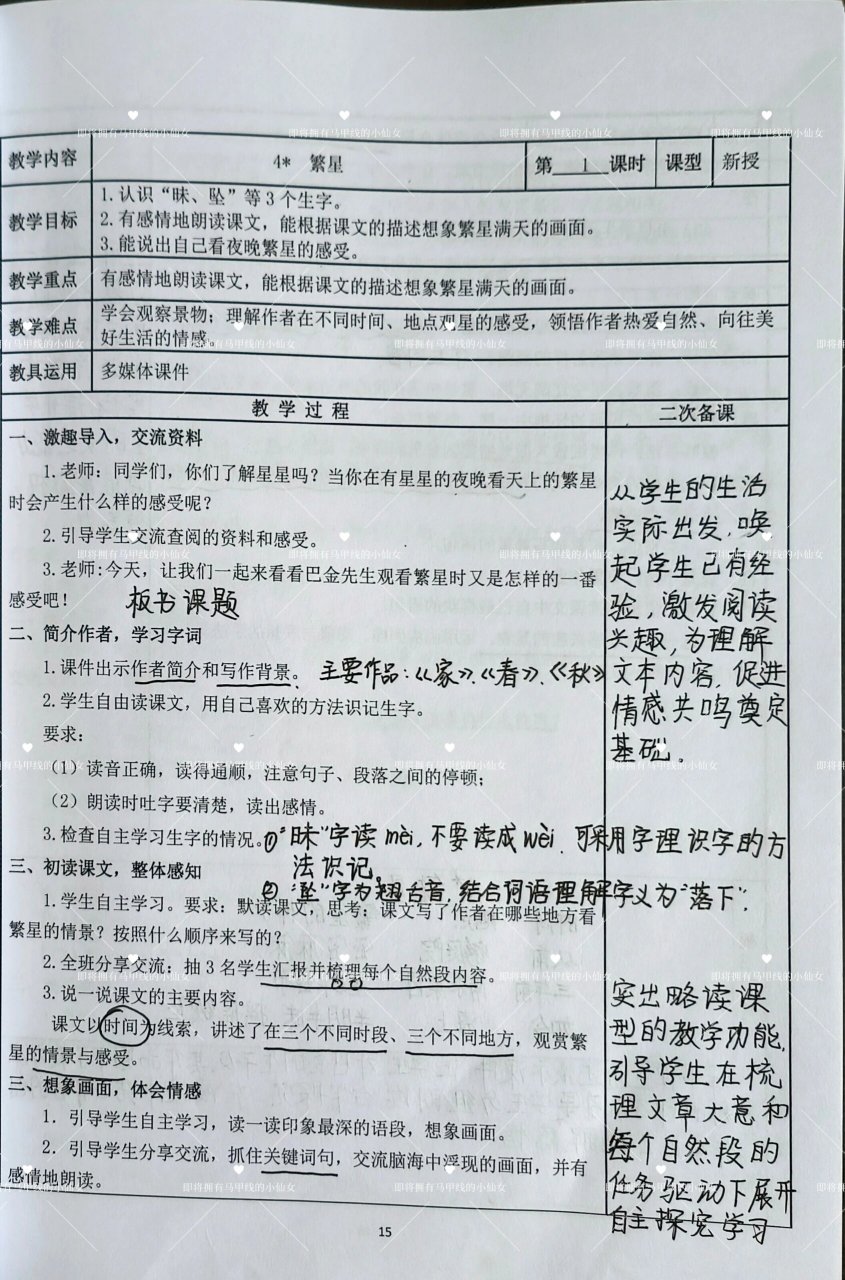 教学内容 4* 繁星 第 1 课时 课型 新授
教学目标
1.认识“昧、坠”等3个生字。
2.有感情地朗读课文，能根据课文的描述想象繁星满天的画面。
3.能说出自己看夜晚繁星的感受。
教学重点 有感情地朗读课文，能根据课文的描述想象繁星满天的画面。
教学难点
学会观察景物；理解作者在不同时间、地点观星的感受，领悟作者热爱自然、向往美
好生活的情感。
教具运用 多媒体课件
教 学 过 程 二次备课
一、激趣导入，交流资料
1.老师：同学们，你们了解星星吗？当你在有星星的夜晚看天上的繁星
时会产生什么样的感受呢？
2.引导学生交流查阅的资料和感受。
3.老师:今天，让我们一起来看看巴金先生观看繁星时又是怎样的一番
感受吧！ 板书课题
二、简介作者，学习字词
1.课件出示作者简介和写作背景。 主要作品：《家》、《春》、《秋》
2.学生自由读课文，用自己喜欢的方法识记生字。
要求：
（1）读音正确，读得通顺，注意句子、段落之间的停顿；
（2）朗读时吐字要清楚，读出感情。
3.检查自主学习生字的情况。①“昧”字读mèi，不要读成wèi．可采用字理识字的方
法识记。
②“坠”字为翘舌音，结合词语理解字义为“落下”．
三、初读课文，整体感知
1.学生自主学习。要求：默读课文，思考：课文写了作者在哪些地方看
繁星的情景？按照什么顺序来写的？
2.全班分享交流：抽3名学生汇报并梳理每个自然段内容。
3.说一说课文的主要内容。
课文以时间为线索，讲述了在三个不同时段、三个不同地方，观赏繁
星的情景与感受。
三、想象画面，体会情感
1．引导学生自主学习，读一读印象最深的语段，想象画面。
2．引导学生分享交流，抓住关键词句，交流脑海中浮现的画面，并有
感情地朗读。
从学生的生活
实际出发，唤
起学生已有经
验，激发阅读
兴趣，为理解
文本内容，促进
情感共鸣奠定
基础。
突出略读课
型的教学功能，
引导学生在梳
理文章大意和
每个自然段的
任务驱动下展开
自主探究学习
15
即将拥有马甲线的小仙女